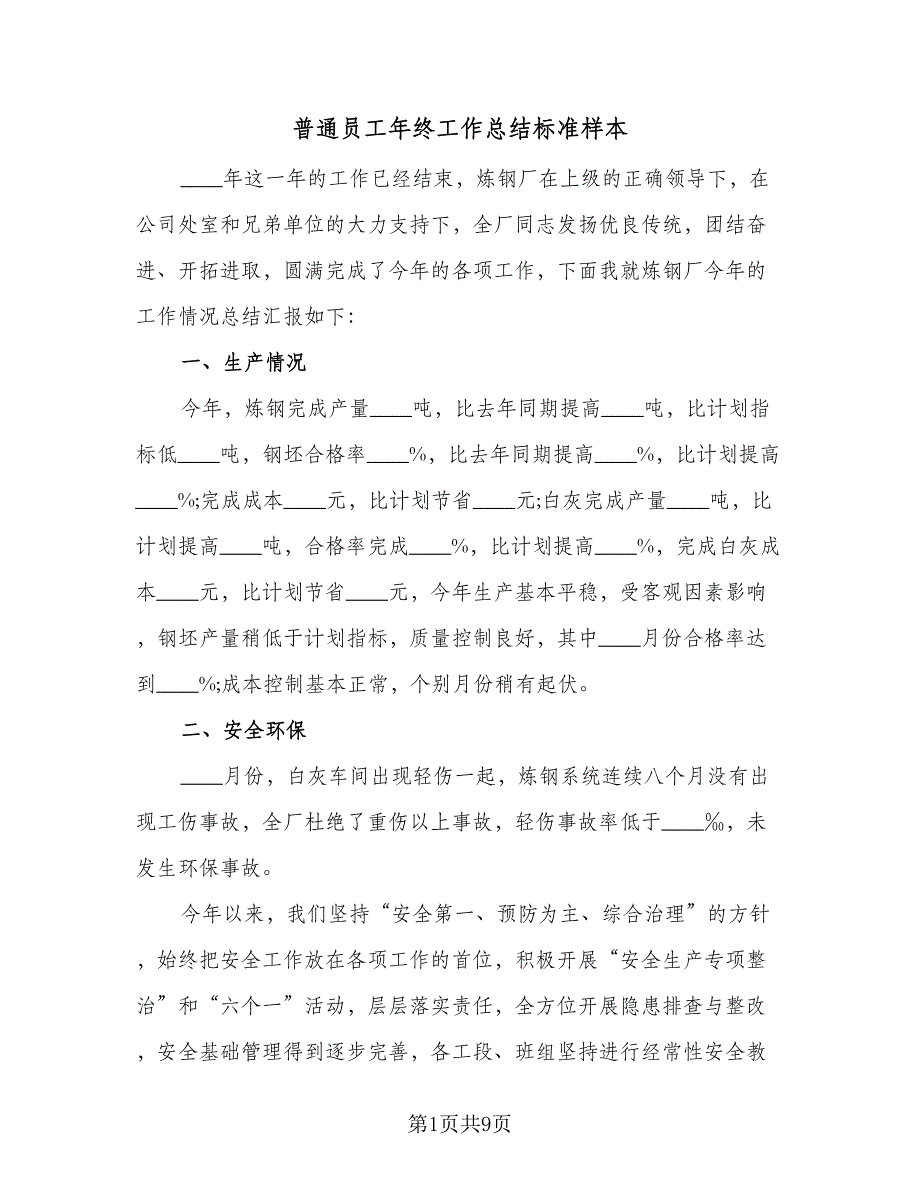 普通员工年终工作总结标准样本
____年这一年的工作已经结束，炼钢厂在上级的正确领导下，在
公司处室和兄弟单位的大力支持下，全厂同志发扬优良传统，团结奋
进、开拓进取，圆满完成了今年的各项工作，下面我就炼钢厂今年的
工作情况总结汇报如下：
一、生产情况
今年，炼钢完成产量____吨，比去年同期提高____吨，比计划指
标低____吨，钢坯合格率____%，比去年同期提高____%，比计划提高
____%;完成成本____元，比计划节省____元;白灰完成产量____吨，比
计划提高____吨，合格率完成____%，比计划提高____%，完成白灰成
本____元，比计划节省____元，今年生产基本平稳，受客观因素影响
，钢坯产量稍低于计划指标，质量控制良好，其中____月份合格率达
到____%;成本控制基本正常，个别月份稍有起伏。
二、安全环保
____月份，白灰车间出现轻伤一起，炼钢系统连续八个月没有出
现工伤事故，全厂杜绝了重伤以上事故，轻伤事故率低于____‰，未
发生环保事故。
今年以来，我们坚持“安全第一、预防为主、综合治理”的方针
，始终把安全工作放在各项工作的首位，积极开展“安全生产专项整
治”和“六个一”活动，层层落实责任，全方位开展隐患排查与整改
，安全基础管理得到逐步完善，各工段、班组坚持进行经常性安全教
第1页共9页